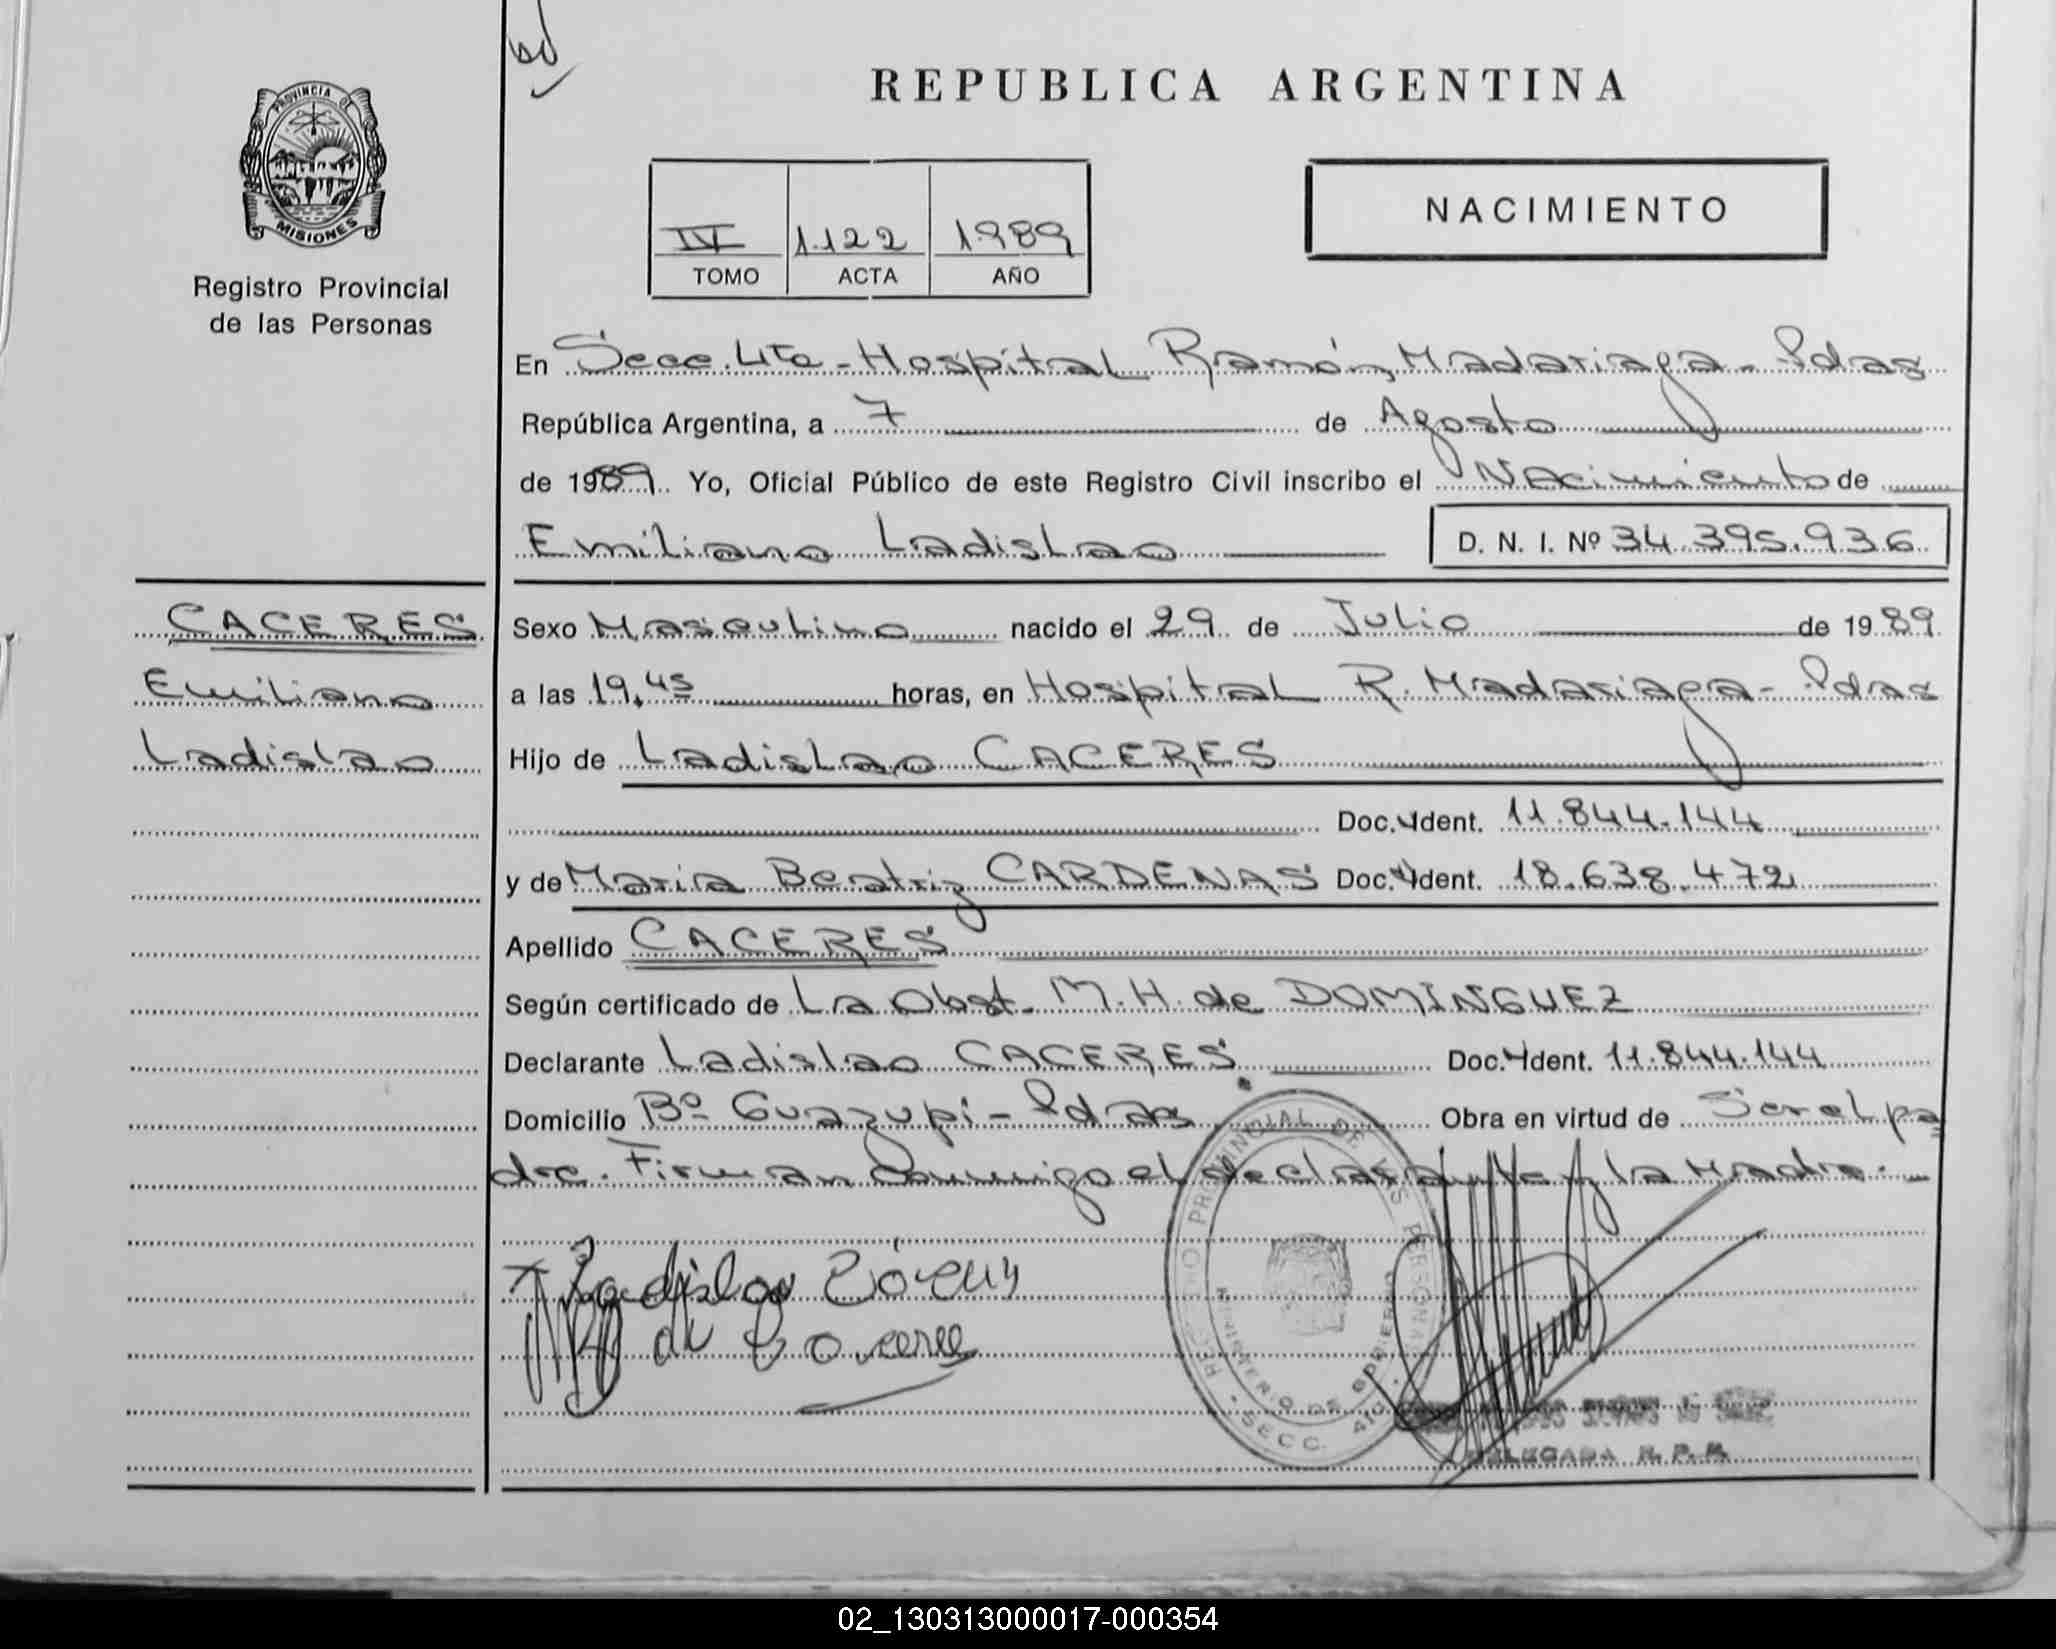 PROVINCIA DE
MISIONES
Registro Provincial
de las Personas
CACERES
Emiliano
Ladislao
REPUBLICA ARGENTINA
IV 1.122 1.989
TOMO ACTA AÑO
NACIMIENTO
En Secc. 4ta - Hospital Ramón Madariaga - Pdas
República Argentina, a 7 de Agosto
de 1989 Yo, Oficial Público de este Registro Civil inscribo el Nacimiento de
Emiliano Ladislao D. N. I. Nº 34.395.936
Sexo Masculino nacido el 29 de Julio de 1989
a las 19,45 horas, en Hospital R. Madariaga - Pdas
Hijo de Ladislao CACERES
Doc. Ident. 11.844.144
y de Maria Beatriz CARDENAS Doc. Ident. 18.638.472
Apellido CACERES
Según certificado de La Obst. M.H. de DOMINGUEZ
Declarante Ladislao CACERES Doc. Ident. 11.844.144
Domicilio Bº Guazupi - Pdas Obra en virtud de Ser el pa
dre. Firman Conmigo el declarante y la Madre.
Ladislao
de Caceres
REGISTRO PROVINCIAL DE LAS PERSONAS
MINISTERIO DE GOBIERNO
SECC. 4ta
DELEGADA R. P. P.
02_130313000017-000354